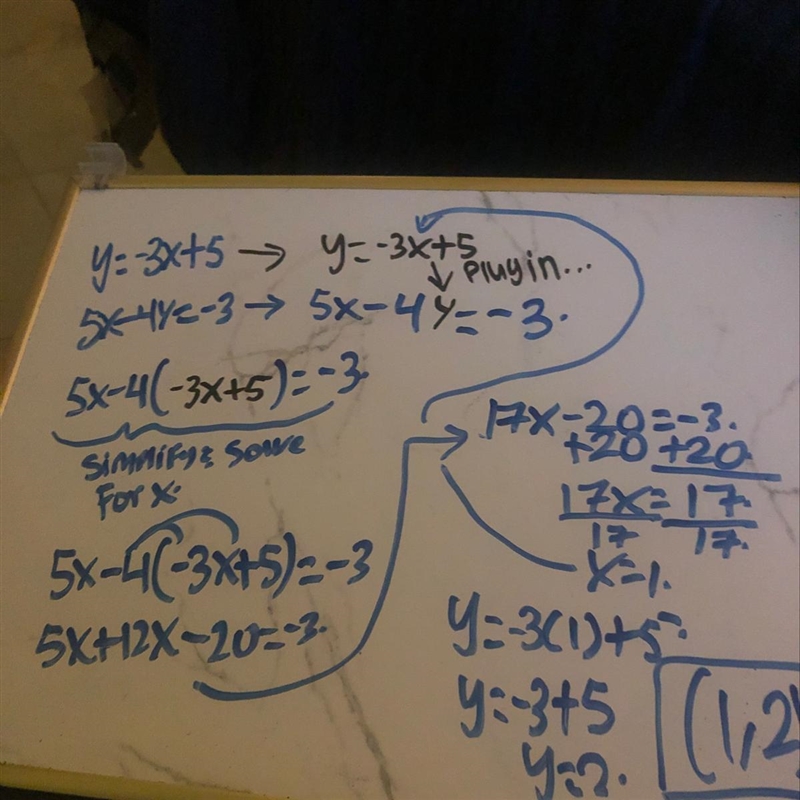 y=-3x+5 → y=-3x+5
↓ Plug in...
5x-4y=-3 → 5x-4y=-3.
5x-4(-3x+5)=-3.
Simplify & Solve
For x.
5x-4(-3x+5)=-3
5x+12x-20=-3.
17x-20=-3.
+20 +20
17x=17.
17 17.
x=1.
y=-3(1)+5.
y=-3+5
y=2.
(1,2)